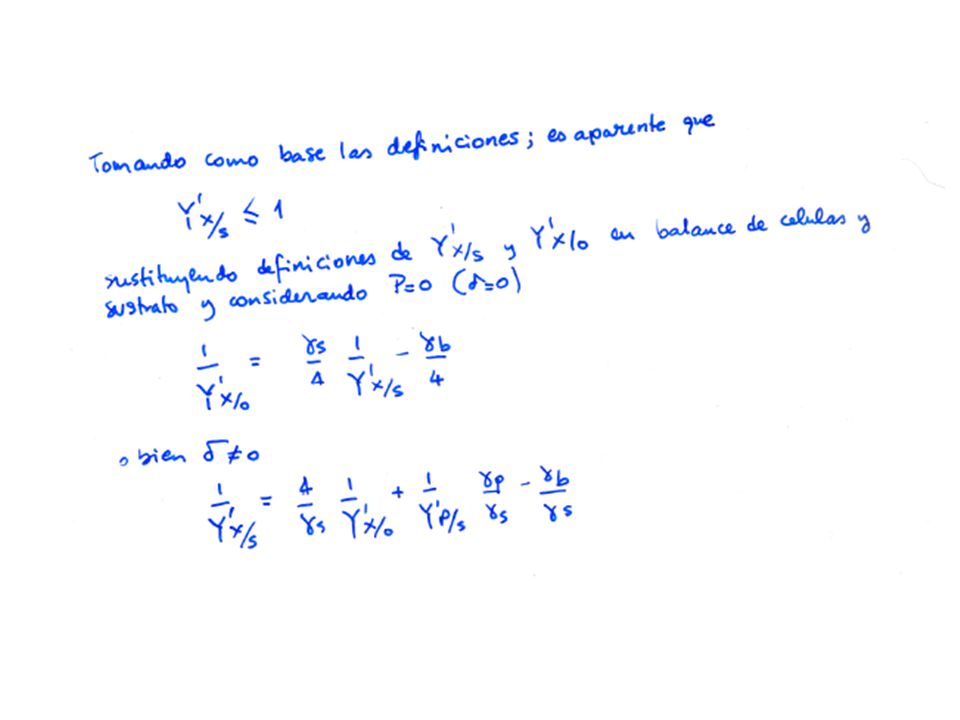 Tomando como base las definiciones; es aparente que
Y'x/s ≤ 1
sustituyendo definiciones de Y'x/s y Y'x/o en balance de celulas y
sustrato y considerando P=0 (δ=0)
1/Y'x/o = γs/4 1/Y'x/s - γb/4
o bien δ≠0
1/Y'x/s = 4/γs 1/Y'x/o + 1/Y'P/s γp/γs - γb/γs